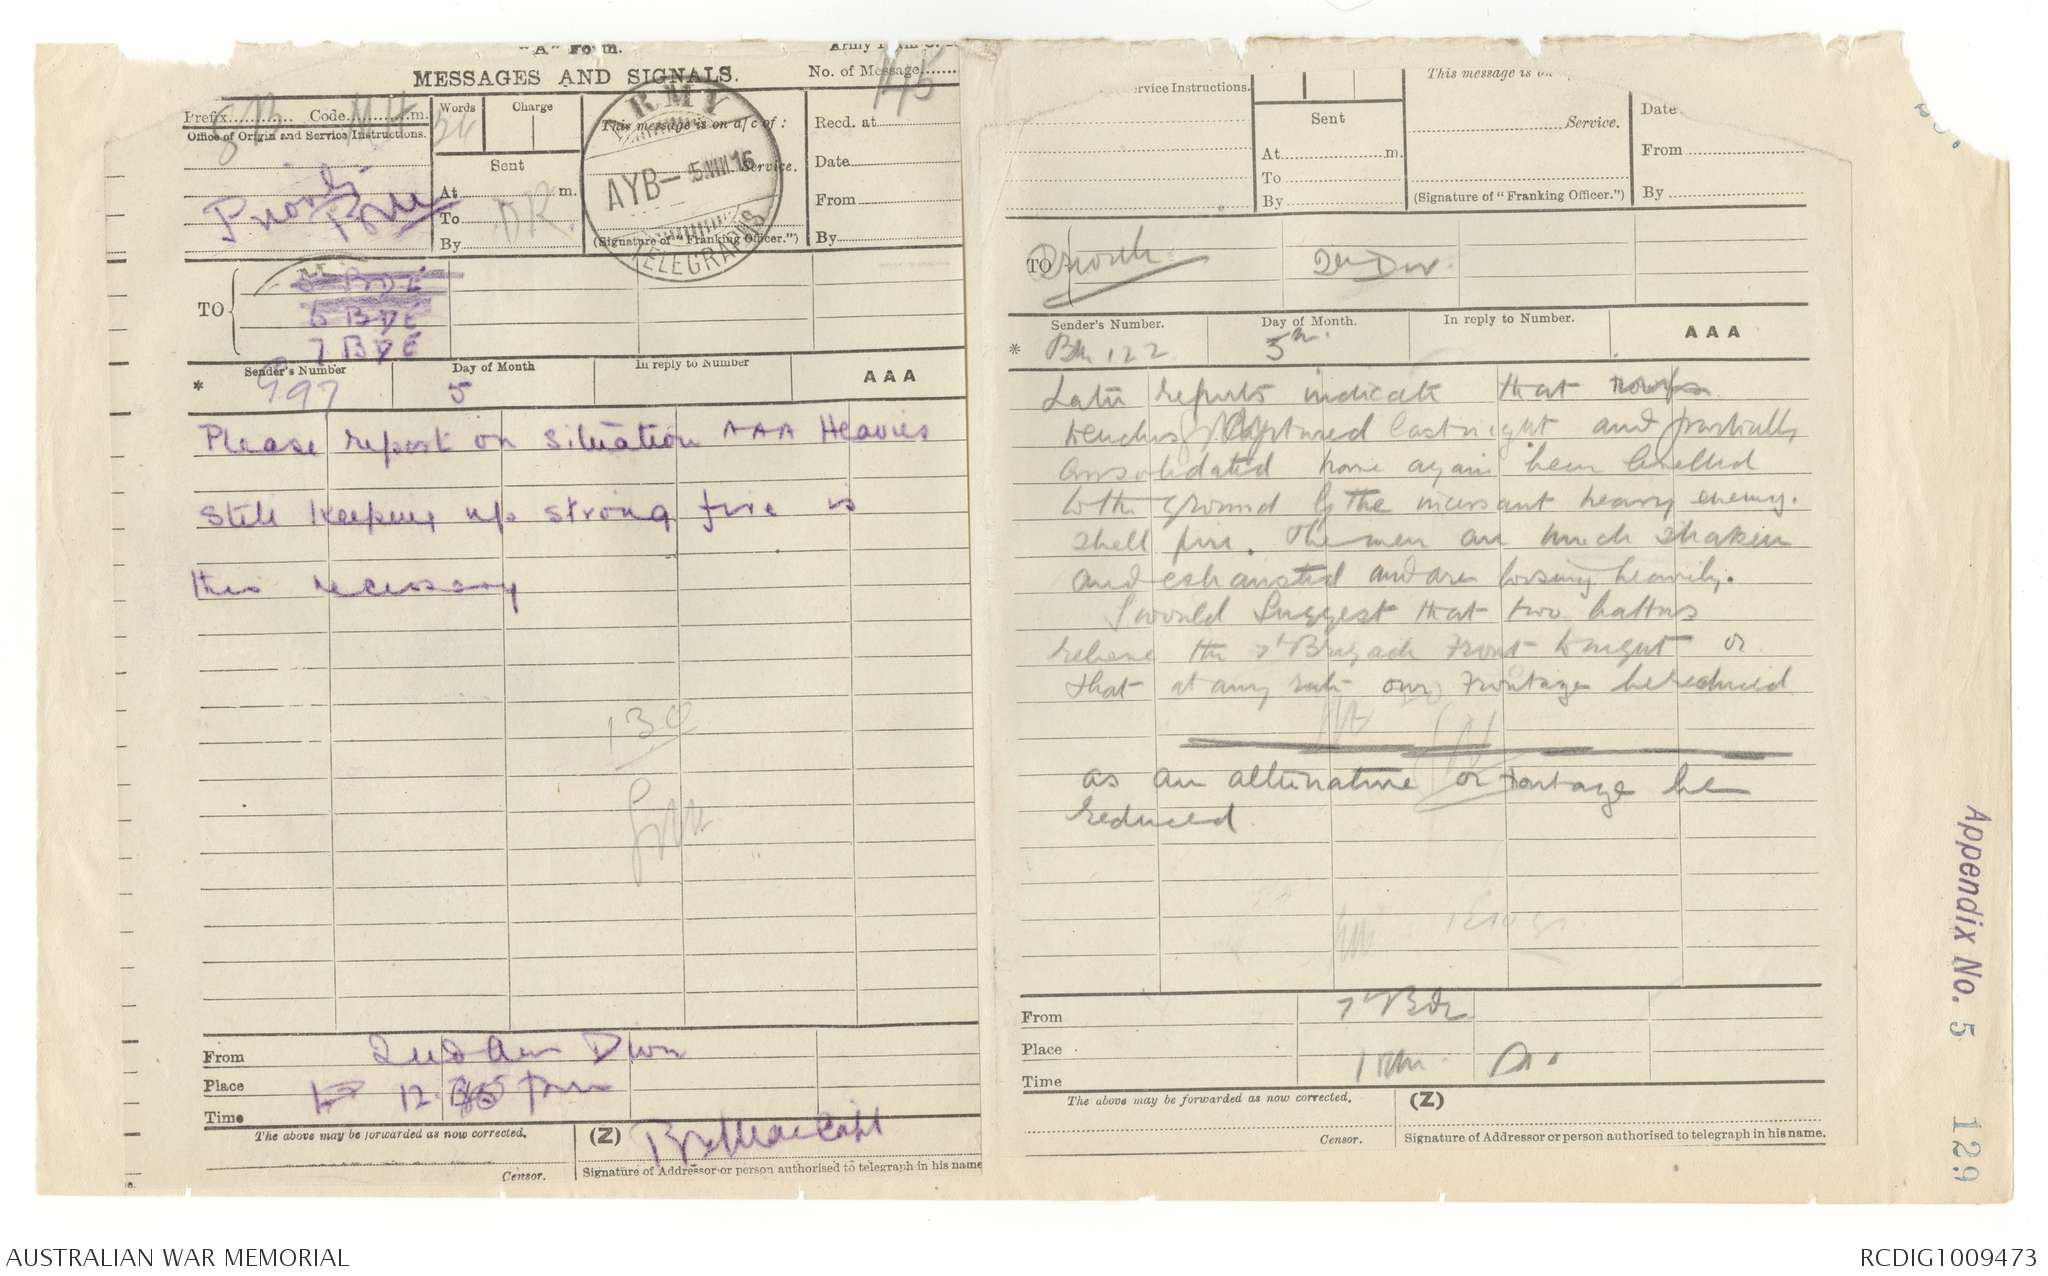 "A" Form.
MESSAGES AND SIGNALS.
No. of Message 145
Prefix SB Code m.
Words
Charge
Office of Origin and Service Instructions.
Priority
Sent
At m.
To DR.
By
This message is on a/c of :
Service.
(Signature of "Franking Officer.")
ARMY
AYB- 5.VIII.16
TELEGRAPHS
Recd. at
Date
From
By
TO
5 BDE
6 BDE
7 BDE
Sender's Number
Day of Month
In reply to Number
AAA
* G97 5
Please report on situation AAA Heavies
still keeping up strong fire is
this necessary
130
From 2nd Aus Divn
Place
Time 12. pm
The above may be forwarded as now corrected.
(Z)
Capt
Censor.
Signature of Addressor or person authorised to telegraph in his name
Service Instructions.
Sent
At m.
To
By
This message is on
Service.
(Signature of "Franking Officer.")
Date
From
By
TO 2n Div.
Sender's Number.
Day of Month.
In reply to Number.
AAA
* Bm 122 5th
Later reports indicate that
trenches captured last night and partially
consolidated have again been levelled
to the ground by the incessant heavy enemy.
shell fire. The men are much shaken
and exhausted and are loosing heavily.
I would suggest that two battns
relieve the 7 Brigade front tonight or
that at any rate our frontage be reduced
as an alternative or frontage be
reduced.
From 7 Bde
Place
Time 1 pm
The above may be forwarded as now corrected.
(Z)
Censor.
Signature of Addressor or person authorised to telegraph in his name.
Appendix No. 5
129
AUSTRALIAN WAR MEMORIAL
RCDIG1009473